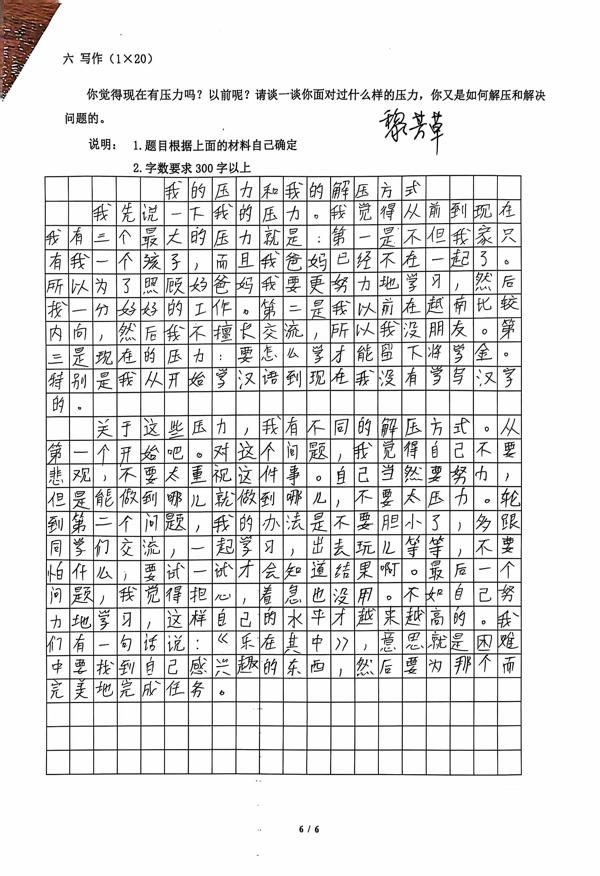 六 写作（1×20）
你觉得现在有压力吗？以前呢？请谈一谈你面对过什么样的压力，你又是如何解压和解决
问题的。
黎芳草
说明： 1.题目根据上面的材料自己确定
2.字数要求 300 字以上
我的压力和我的解压方式
我先说一下我的压力。我觉得从前到现在
我有三个最大的压力就是：第一是不但我家只
有我一个孩子，而且我爸妈已经不在一起了。
所以为了照顾好爸妈我要更努力地学习，然后
找一分好好的工作。第二是我以前在越南比较
内向，然后我不擅长交流，所以我没朋友。第
三是现在的压力：要怎么学才能留下将学金。
特别是我从开始学汉语到现在我没有学写汉字
的。
关于这些压力，我有不同的解压方式。从
第一个开始吧。对这个问题，我觉得自己不要
悲观，不要太重视这件事。自己当然要努力，
但是能做到哪儿就做到哪儿，不要太压力。轮
到第二个问题，我的办法是不要胆小了，多跟
同学们交流，一起学习，出去玩儿等等，不要
怕什么，要试一试才会知道结果啊。最后一个
问题，我觉得担心，着急也没用。不如自己努
力地学习，这样自己的水平才越来越高的。我
们有一句话说：《乐在其中》，意思就是困难
中要找到自己感兴趣的东西，然后要为那个而
完美地完成任务。
6 / 6